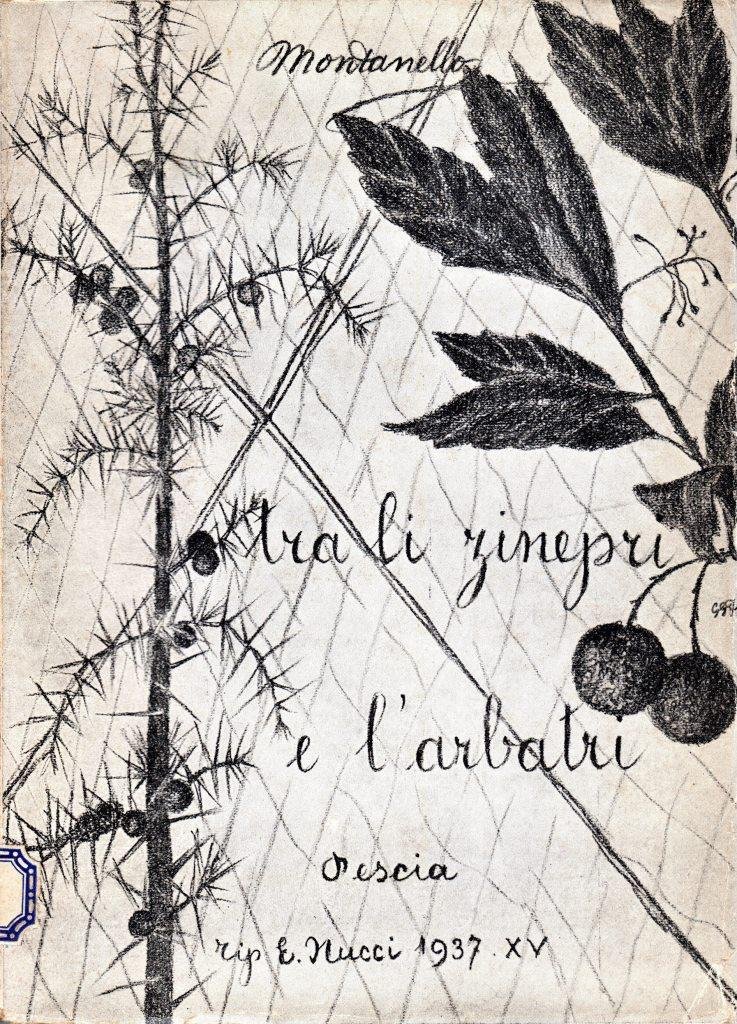 Montanello
tra li zinepri
e l'arbatri
Pescia
Tip E. Nucci 1937. XV